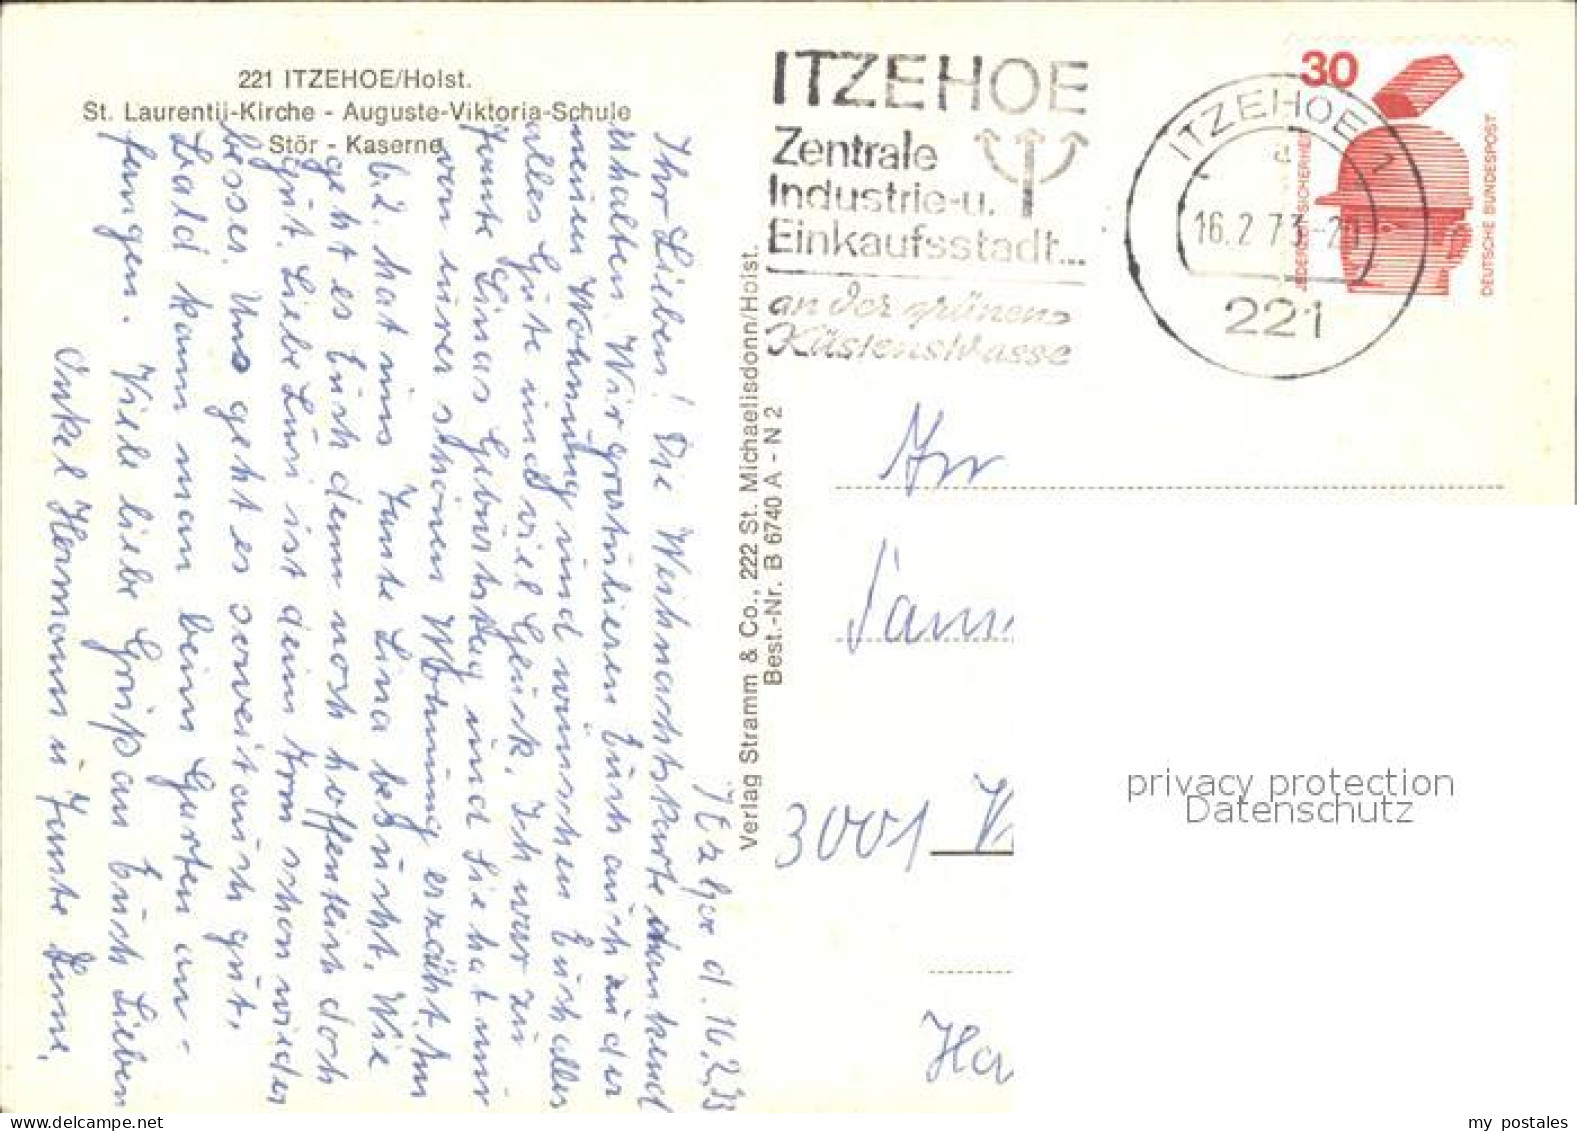 221 ITZEHOE/Holst.
St. Laurentii-Kirche - Auguste-Viktoria-Schule
Stör - Kaserne
Itzehoe d. 16.2.73
Ihr Lieben! Die Weihnachtskarte dankend
erhalten. Wir gratulieren Euch auch zu der
neuen Wohnung und wünschen Euch alles
alles Gute und viel Glück. Ich war zu
Tante Linas Geburtstag und Sie hat mir
von eurer schönen Wohnung erzählt. Am
6.2. hat uns Tante Lina besucht. Wie
geht es Euch denn noch hoffentlich doch
gut. Liebe ist dein schon wieder
besser. Uns geht es soweit auch gut.
Bald kann man beim Garten an-
fangen. Viele liebe Grüße an Euch Lieben
Onkel Hermann u Tante
Verlag Stramm & Co., 222 St. Michaelisdonn/Holst.
Best.-Nr. B 6740 A - N 2
ITZEHOE
Zentrale
Industrie-u.
Einkaufsstadt...
an der grünen
Küstenstrasse
ITZEHOE 1
a
16.2.73-20
221
30
JEDERZEIT SICHERHEIT
DEUTSCHE BUNDESPOST
3001
privacy protection
Datenschutz
my postales